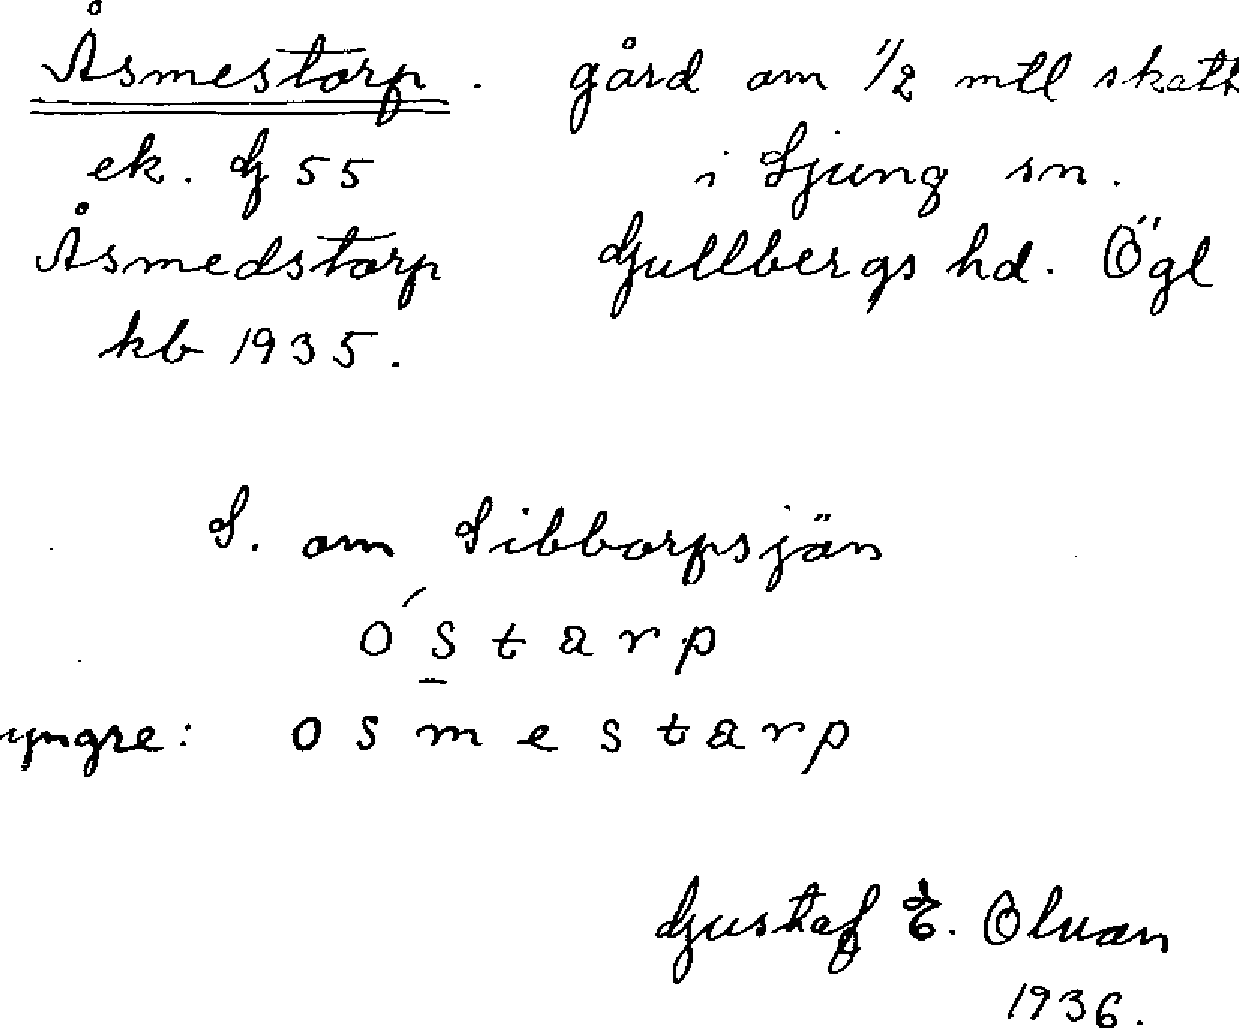 Åsmestorp. gård om 1/2 mtl skatte
ek. G 55 i Ljung sn.
Åsmedstorp Gullbergs hd. Ögl
kb 1935.
S. om Sibborpsjön
ó s̲ t a r p
yngre: o s m e s t a r p
Gustaf E. Olvan
1936.